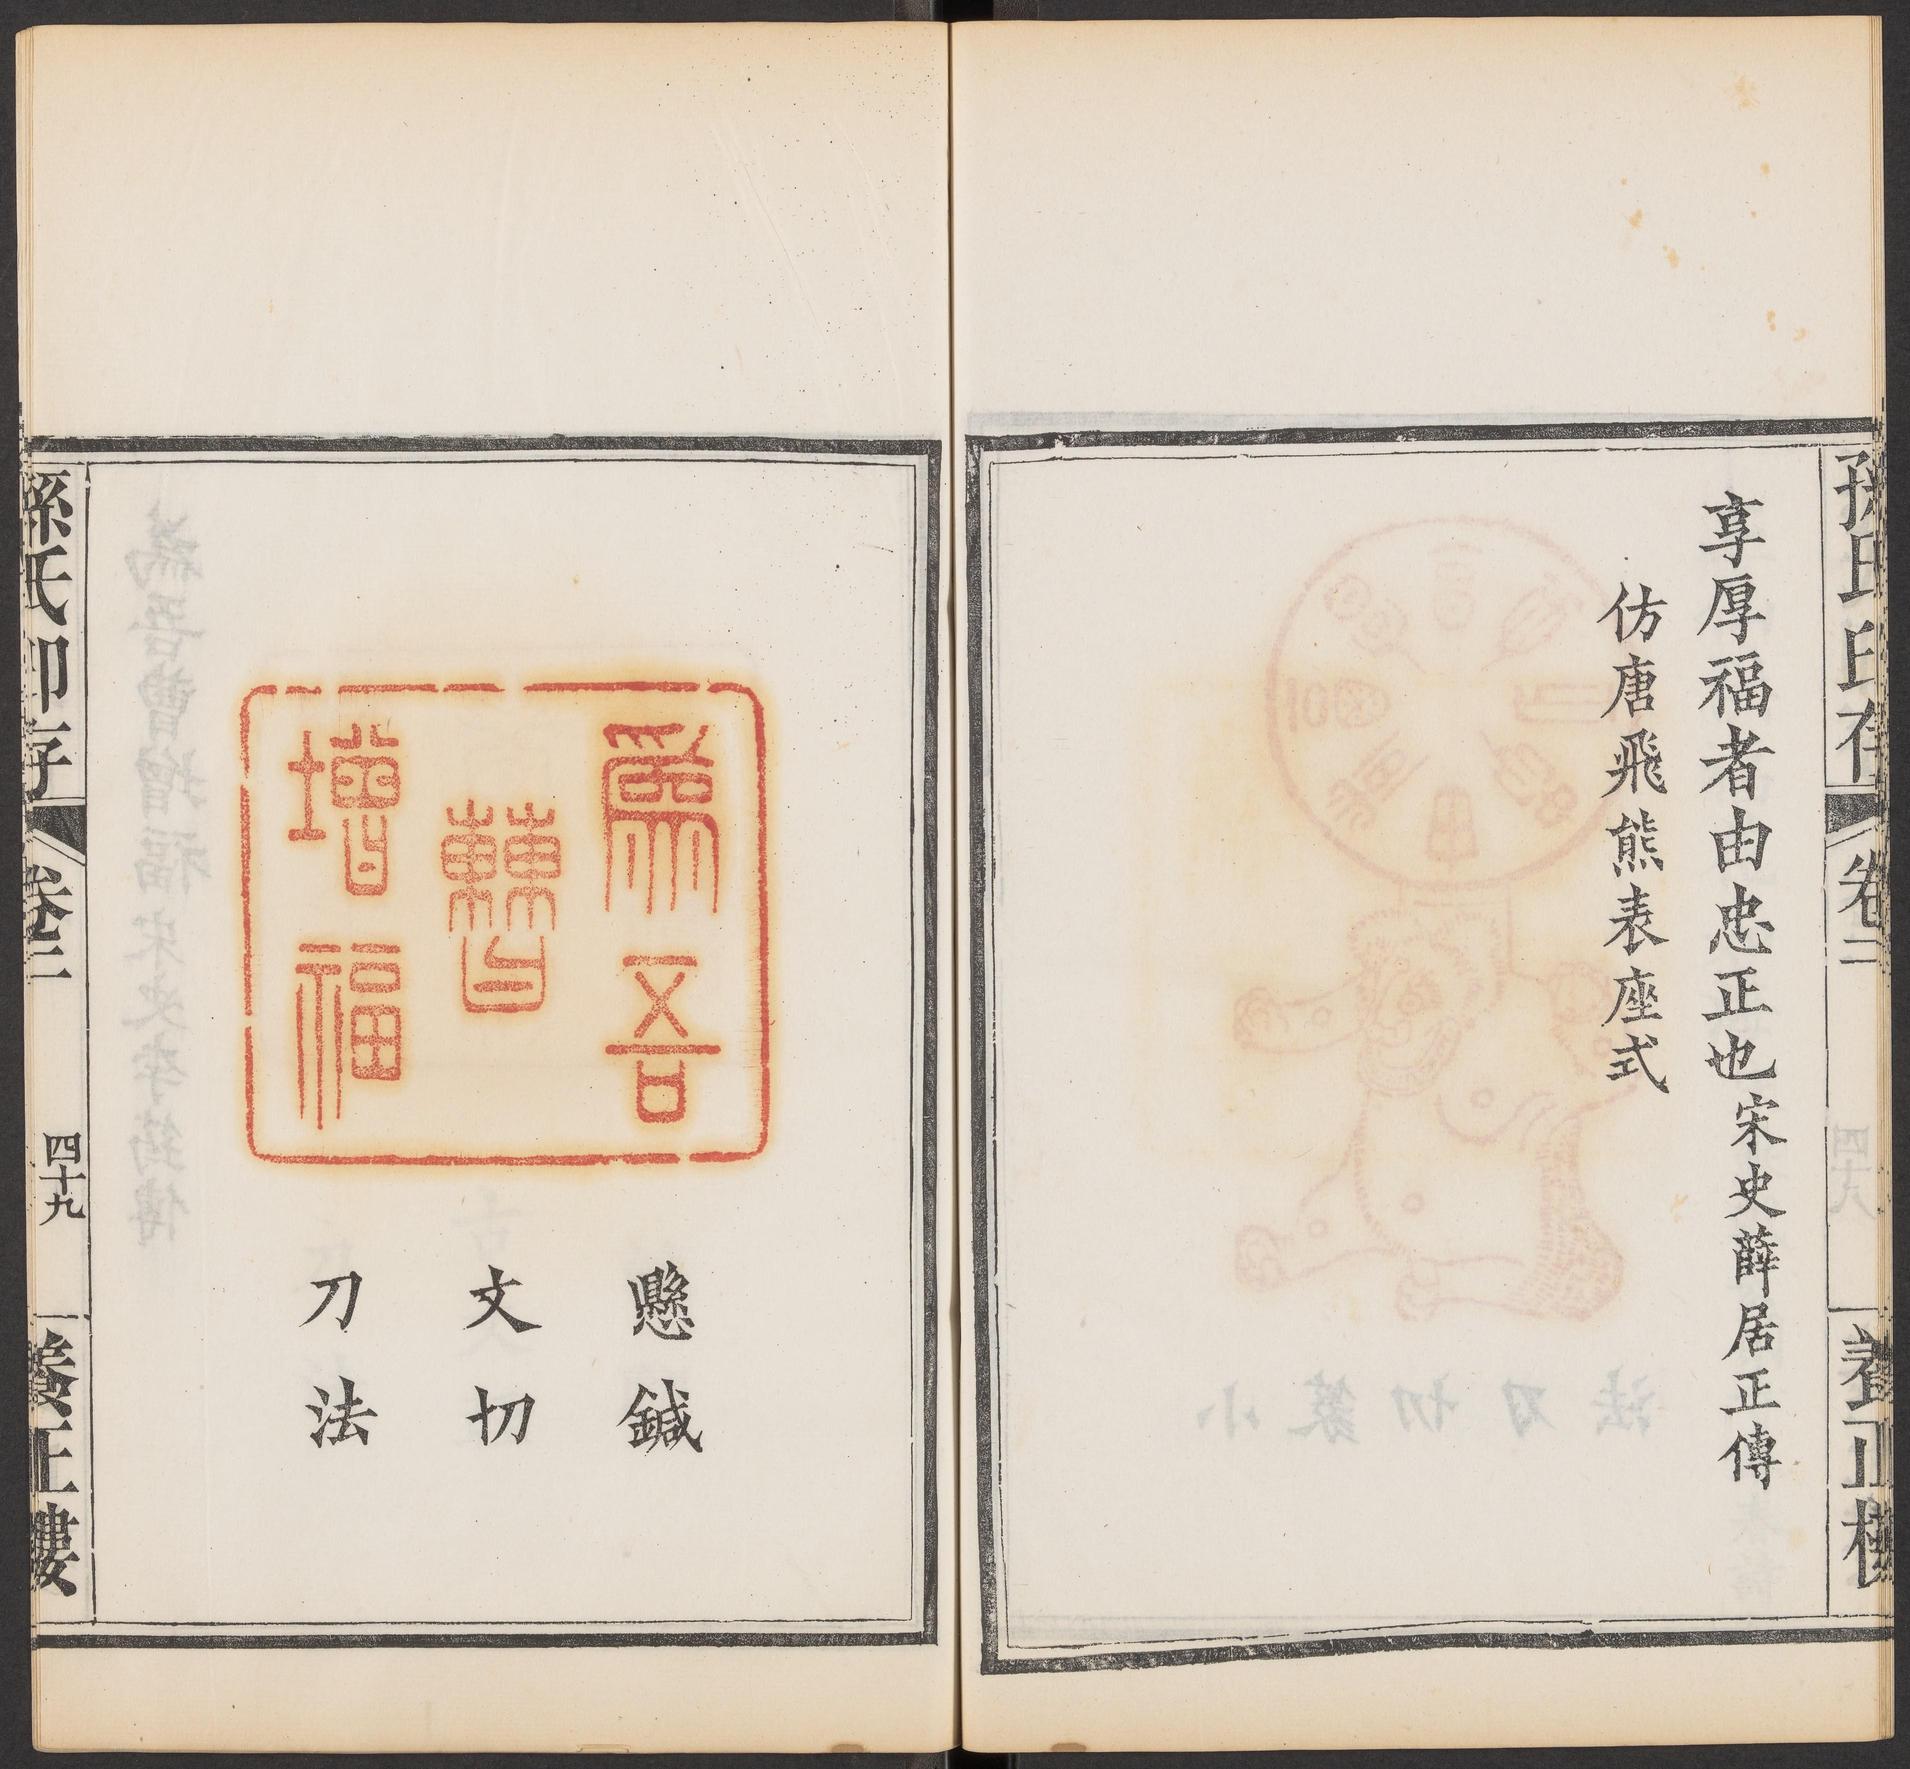 孫氏印存
卷
養正樓
享厚福者由忠正也宋史薛居正傳
仿唐飛熊表座式
爲吾
曹
增福
懸鍼
文切
刀法
孫氏印存
卷
四十九
養正樓